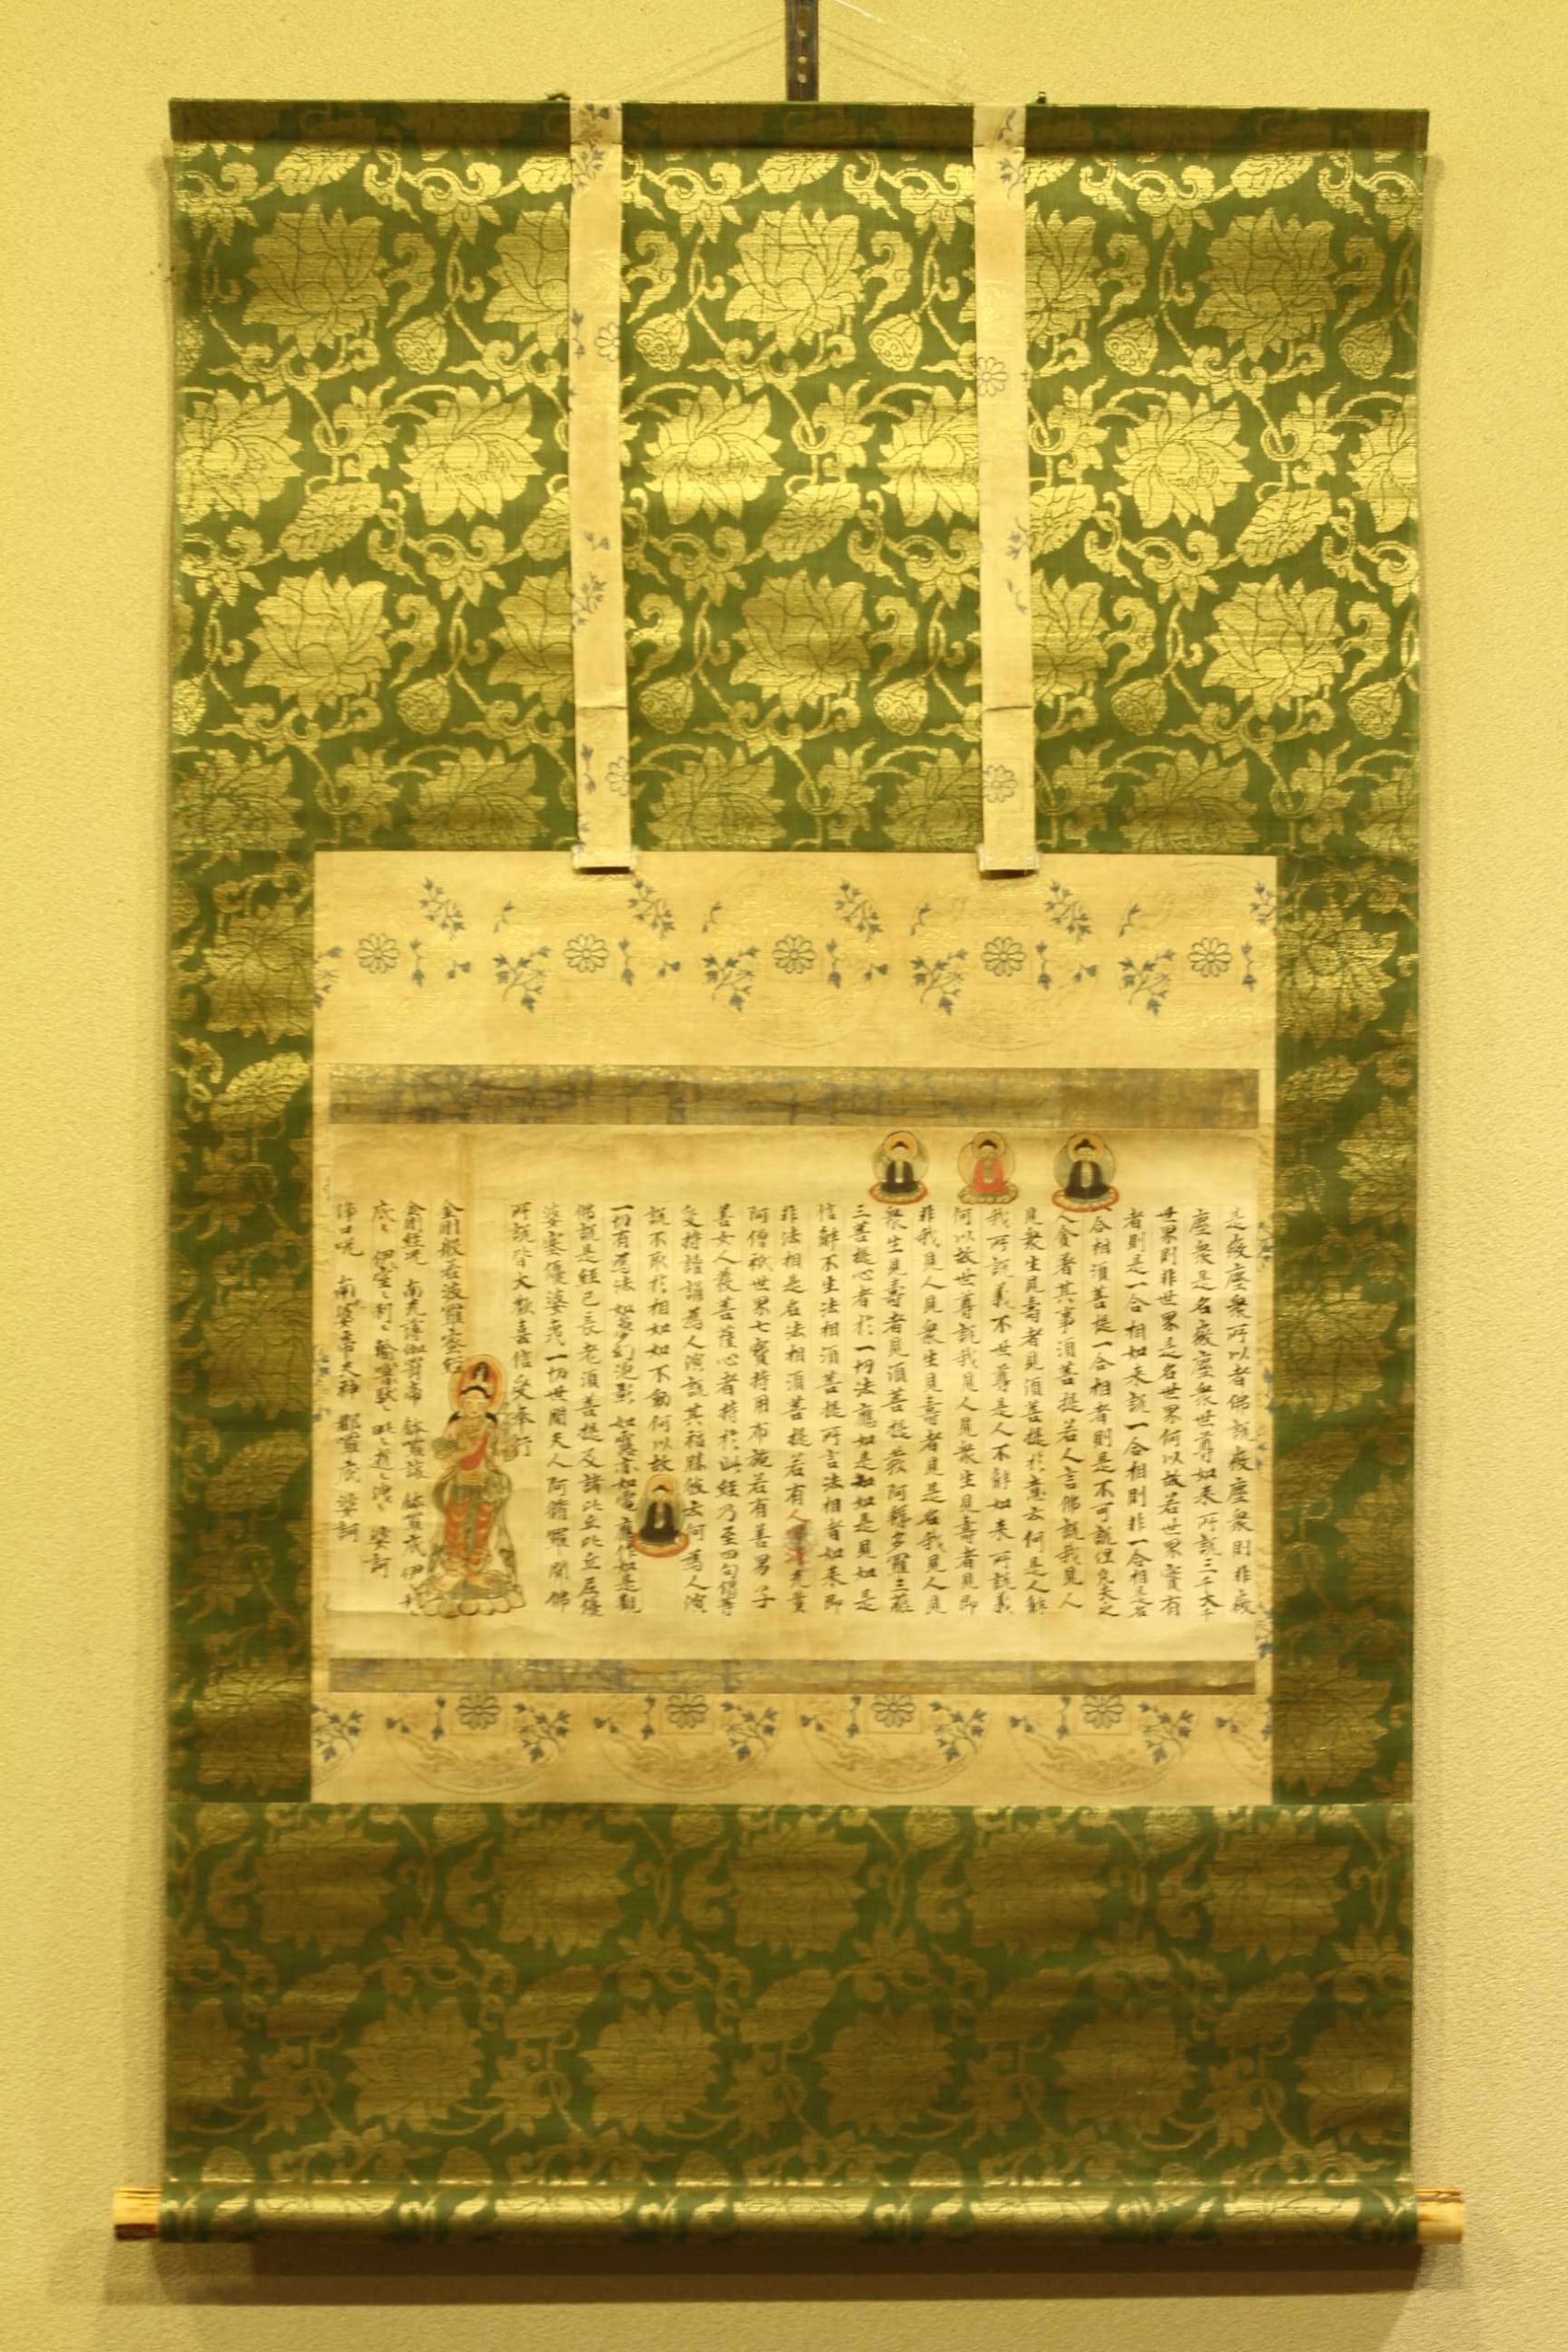 是微塵衆所以者佛說微塵衆則非微
塵衆是名微塵衆世尊如来所說三千大千
世界則非世界是名世界何以故若世界實有
者則是一合相如来說一合相則非一合相是名
一合相須菩提一合相者則是不可說但凡夫之
人貪著其事須菩提若人言佛說我見人
見衆生見壽者見須菩提於意云何是人解
我所說義不世尊是人不解如来所說義
何以故世尊說我見人見衆生見壽者見即
非我見人見衆生見壽者見是名我見人見
衆生見壽者見須菩提發阿耨多羅三藐
三菩提心者於一切法應如是知如是見如是
信解不生法相須菩提所言法相者如来即
非法相是名法相須菩提若有人無量
阿僧祇世界七寶持用布施若有善男子
善女人發菩薩心者持於此經乃至四句偈等
受持讀誦為人演說其福勝彼云何為人演
說不取於相如如不動何以故
一切有為法如夢幻泡影如露亦如電應作如是觀
佛說是經已長老須菩提及諸比丘比丘尼優
婆塞優婆夷一切世間天人阿脩羅聞佛
所說皆大歡喜信受奉行
金剛般若波羅蜜經
金剛經呪 南无薄伽
婆訶
淨口呪 南